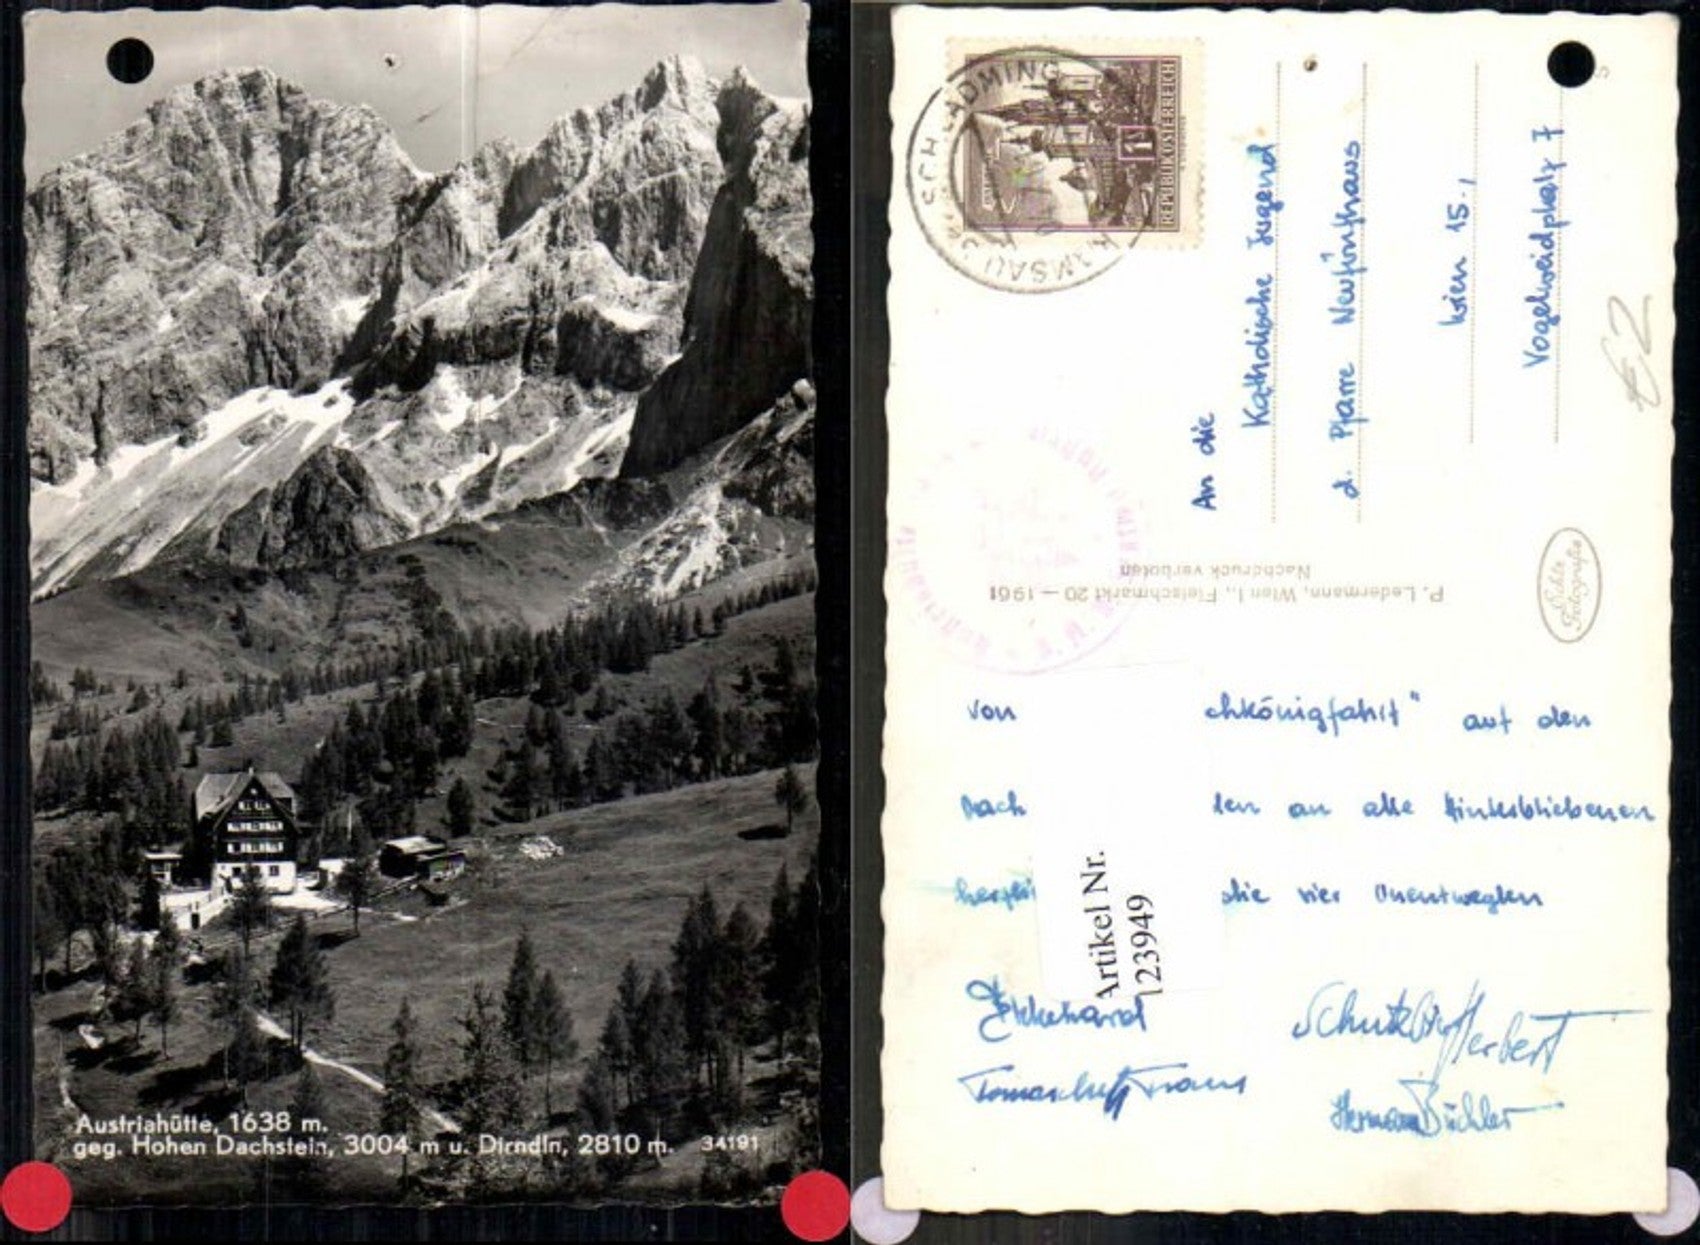 Austriahütte, 1638 m.
geg. Hohen Dachstein, 3004 m u. Dirndln, 2810 m. 34191
SCHLADMING
RAMSAU
REPUBLIK ÖSTERREICH
1
An die
Katholische Jugend
d. Pfarre Neufünfhaus
Wien 15.,
Vogelweidplatz 7
€ 2
Echte Fotografie
P. Ledermann, Wien I., Fleischmarkt 20 – 1961
Nachdruck verboten
von chkönigfahrt" auf den
Dach ten an alle Hinterbliebenen
herzli die vier Unentwegten
Artikel Nr.
123949
Ekkehard
Herbert
Franz
Hermann Büchler